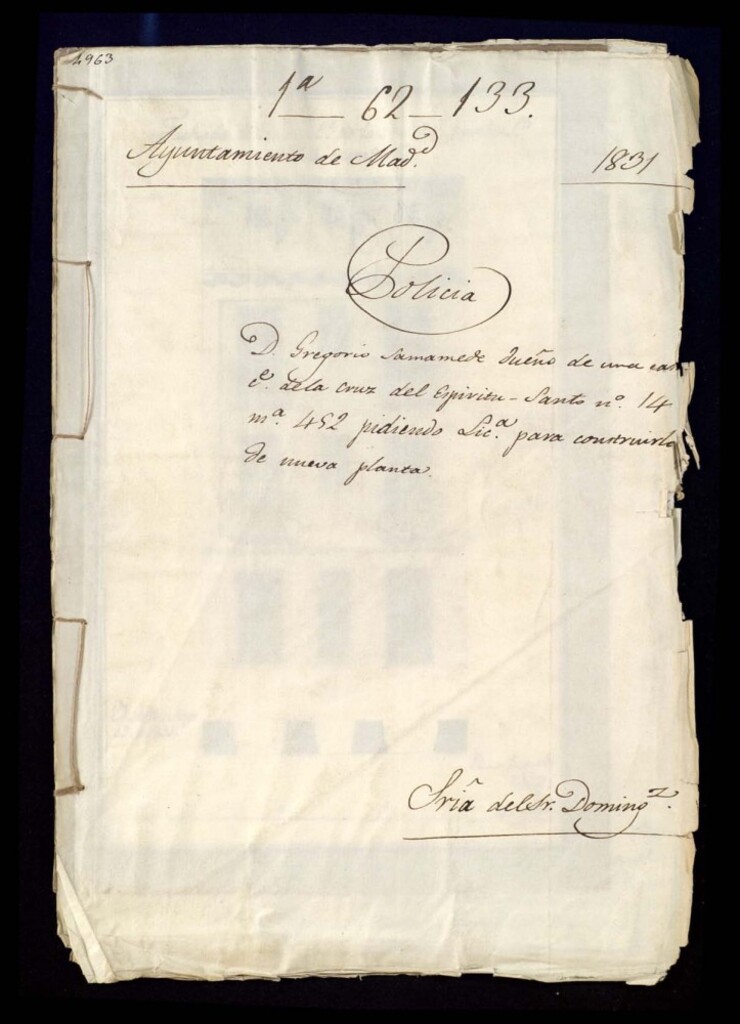 4963
1ª — 62 — 133.
Ayuntamiento de Madᵈ.
1831
Policia
D. Gregorio Samamede dueño de una cas
cᵉ. dela cruz del Espiritu-Santo nº. 14
mª. 452 pidiendo Licª. para construirla
de nueva planta.
Sriª del Sr. Domingᶻ.